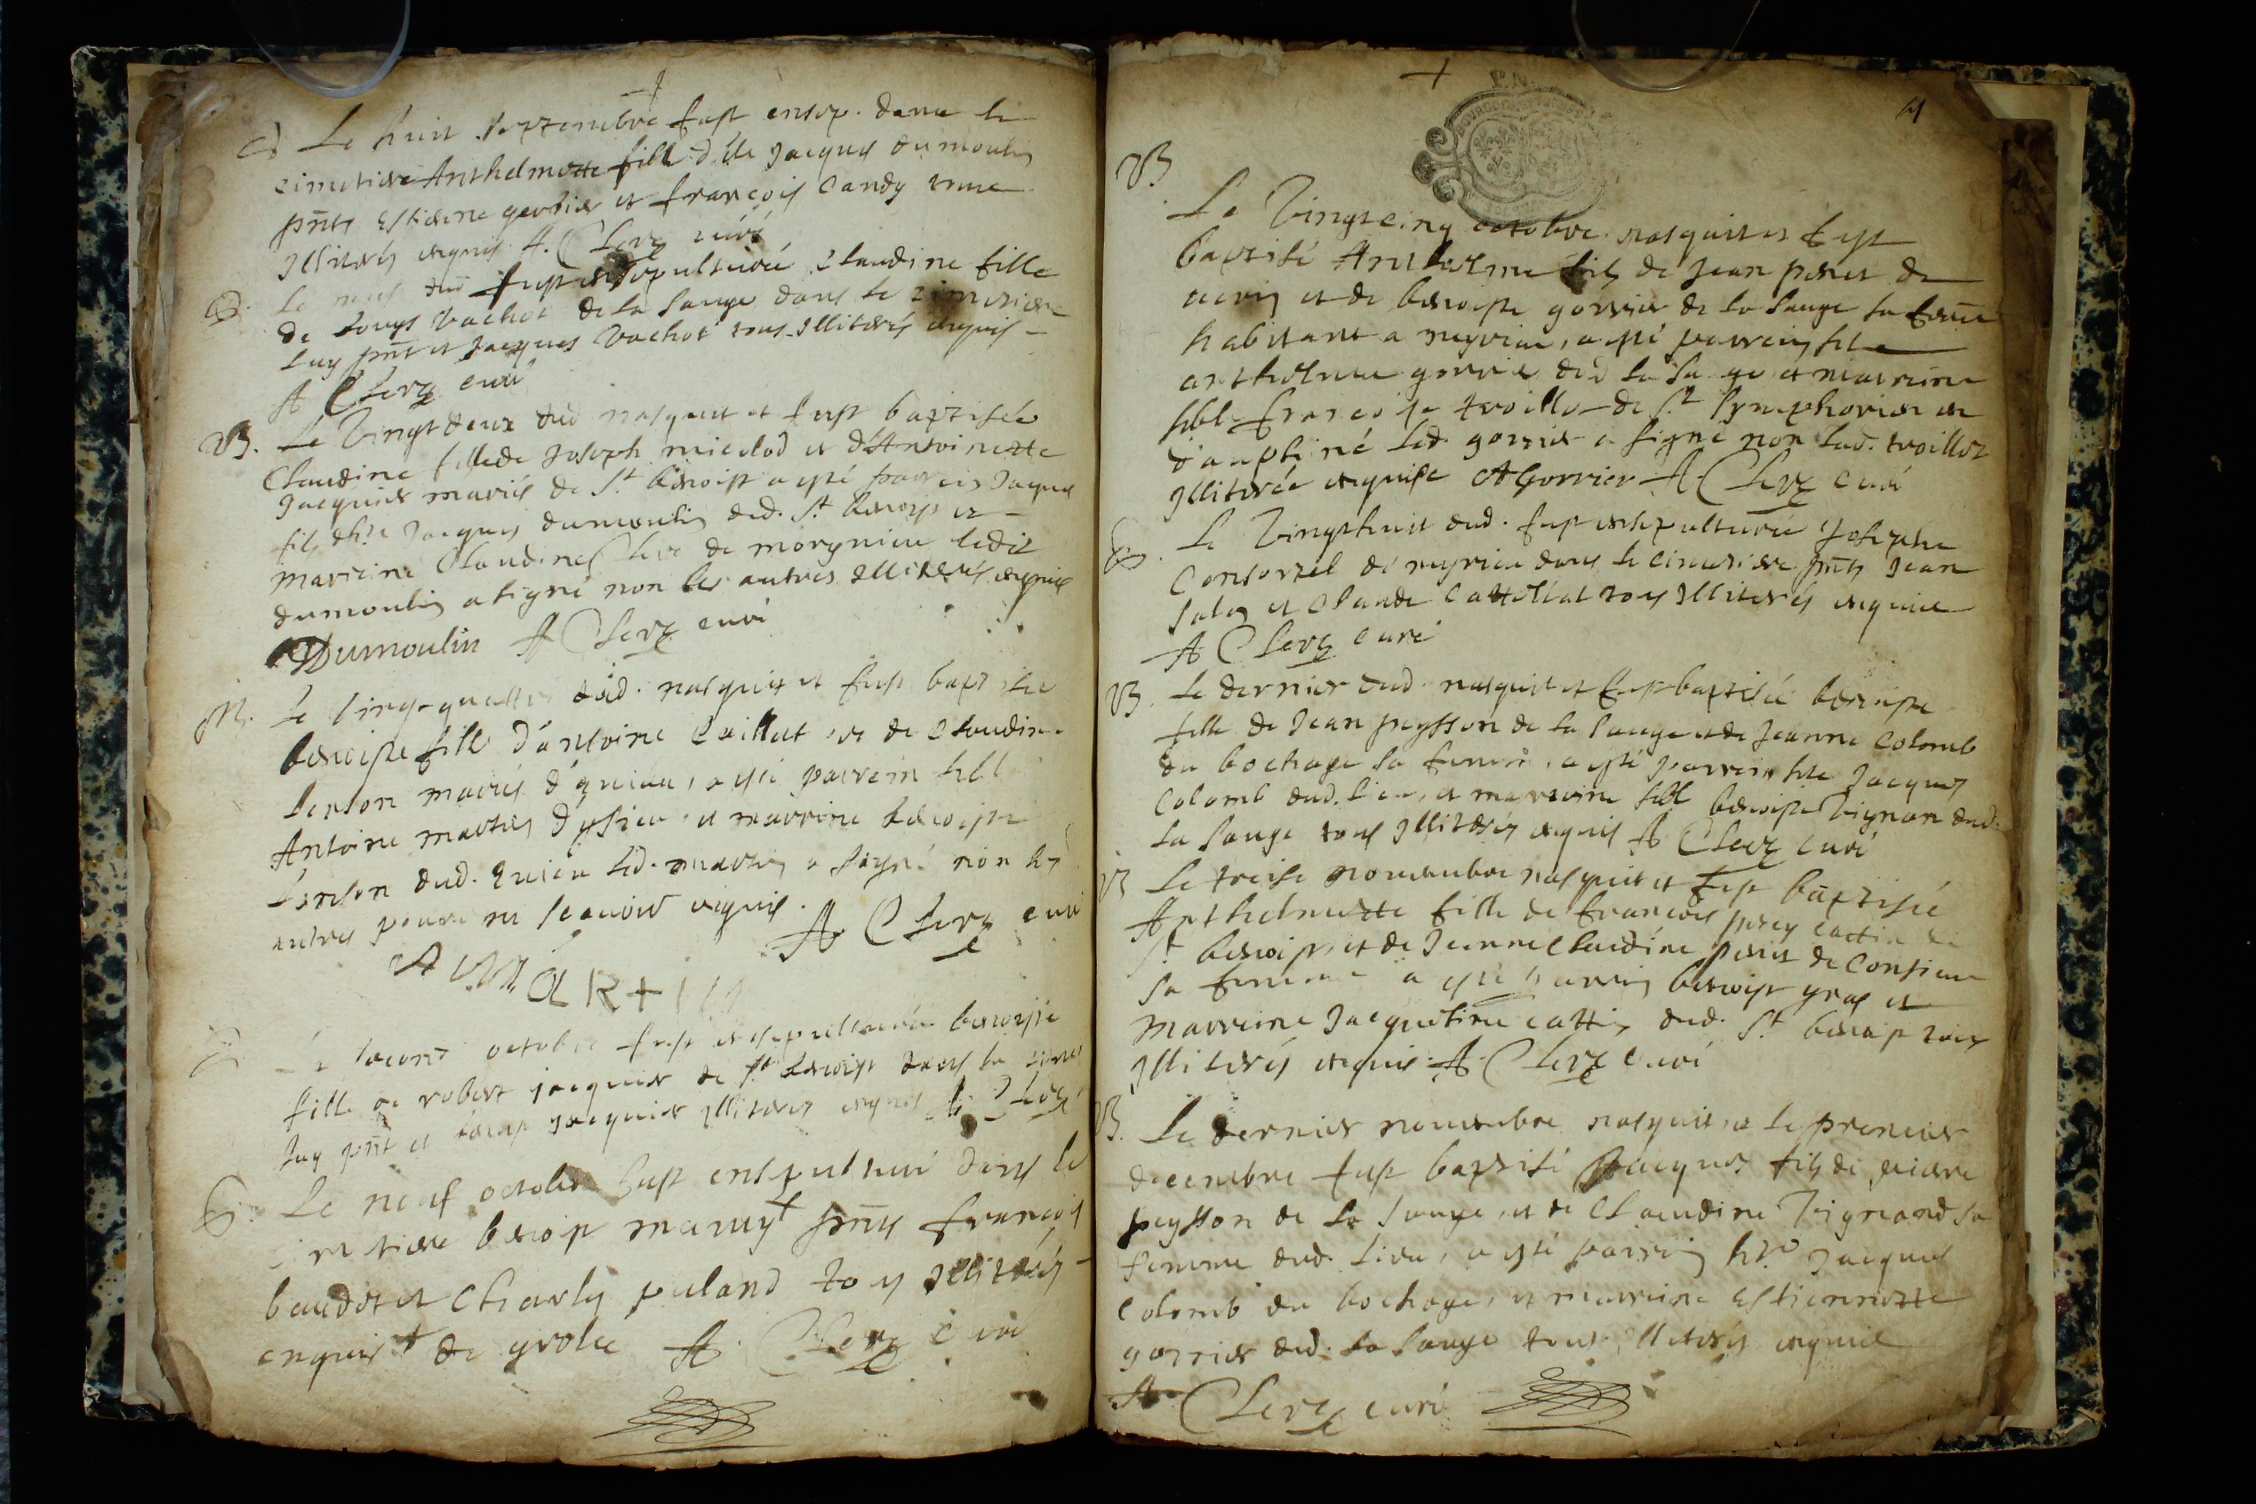 Le huit septembre fust ensep. dans le
cimetiere Anthelmette fille d'hte Jacques dumoulin
pnts Estienne gerbier et françois Candy tous
Illiterés enquis A. Clerq curé
Le neuf dud fust ensepulturée Claudine fille
de Louys Vachot de la Sauge dans le cimetiere
luy pnt et Jacques Vachot tous Illiterés enquis
A Clerq curé
B. Le Vingtdeux dud nasquit et fust baptisée
Claudine fille de Joseph mielod et d'Antoinette
Jacquier mariés de St benoist a esté parrein Jaques
fils d'hte Jacques dumoulin dud. St benoist et
marreine Claudine Clere de morgnieu ledit
dumoulin a signé non les autres Illiterés enquis
Dumoulin A Clerq curé
B. Le vingt-quattre dud. nasquit et fust baptisée
benoiste fille d'antoine Caillat et de Claudine
benson mariés d'quieu, a esté parrein hble
Antoine martin d'ysieu et marreine benoiste
benson dud. quieu led. martin a signé non les
autres pour ne scavoir enquis. A Clerq curé
A MaR+IN
Le second octobre fust ensepulturée benoiste
fille de robert jacquier de St benoist dans le
luy pnt et benoist jacquier Illiterés enquis A Clerq
Le neuf octobre fust ensepulturé dans le
cimetiere benoist pnts françois
baudet et Charly puland tous Illiterés
enquis de grolee A Clerq curé
B
Le Vingtcinq octobre nasquit et fust
baptisé Anthelme fils de Jean peret de
et de benoiste gorrier de la Sauge sa femme
habitant a meyrieu, a esté parrein hble
anthelme gorrier dud la Sauge et marreine
hble françoise troillet de St Symphorien en
dauphiné led. gorrier a signé non lad. troillet
Illiterée enquise AGorrier A Clerq curé
Le Vingthuit dud. fust ensepulturée Josephe
Consorzel de meyrieu dans le cimetiere pnts Jean
et Claude Cattelat tous Illiterés enquis
A Clerq curé
B. Le dernier dud. nasquit et fust baptisée benoiste
fille de Jean peysson de la Sauge et de Jeanne Colomb
du bochage sa femme, a esté parrein hble Jacques
Colomb dud. lieu, et marreine hble benoiste Vignan dud.
la Sauge tous Illiterés enquis A Clerq curé
B Le treise novembre nasquit et fust baptisée
Anthelmette fille de françois cattin de
St benoist et de Jeanne Claudine peret de Consieu
sa femme a esté parrein benoist gras et
marreine Jacqueline cattin dud. St benoist tous
Illiterés enquis A. Clerq curé
B. Le dernier novembre nasquit, et le premier
decembre fust baptisé Jacques fils de pierre
peysson de la Sauge, et de Claudine Vignand sa
femme dud. lieu, a esté parrein hble Jacques
Colomb du bochage, et marreine Estiennette
gorrier dud. la Sauge tous Illiterés enquis
A Clerq curé